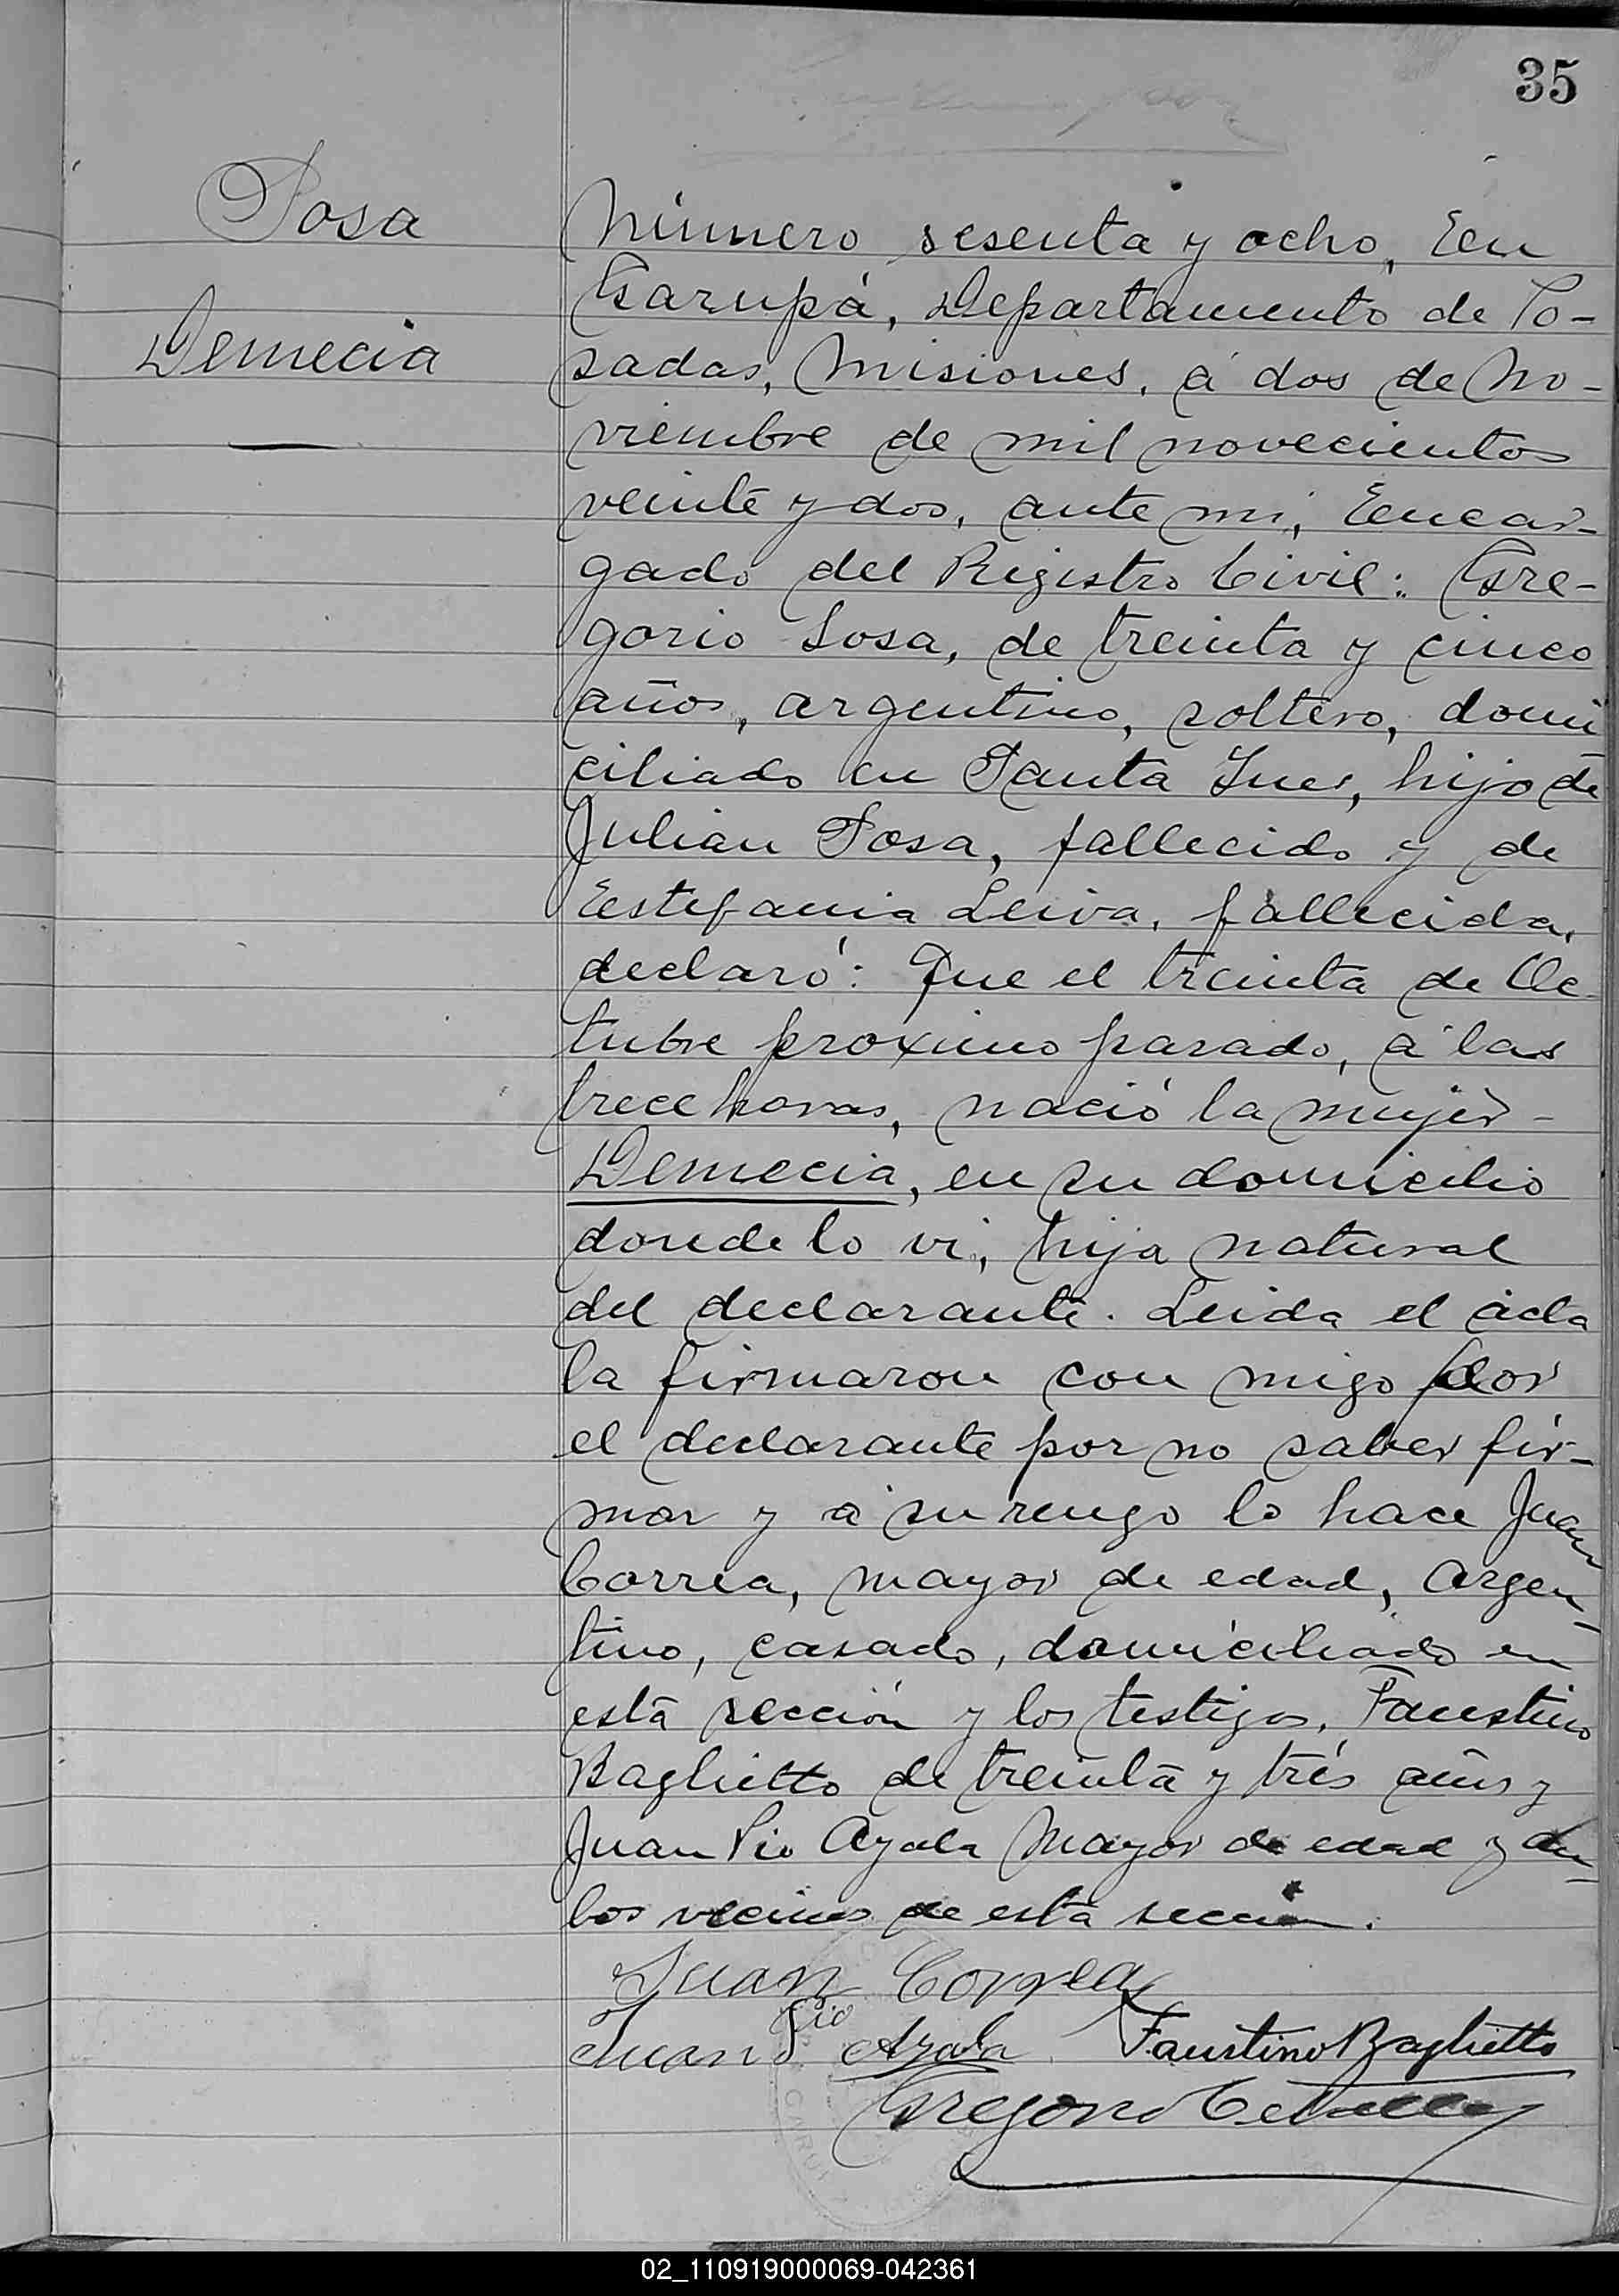 35
Sosa
Demecia
Número sesenta y ocho, En
Garupá, Departamento de Po-
sadas, Misiones, á dos de No-
viembre de mil novecientos
veinte y dos, ante mi, Encar-
gado del Registro Civil: Gre-
gorio Sosa, de treinta y cinco
años, argentino, soltero, domi
ciliado en Santa Ines, hijo de
Julian Sosa, fallecido y de
Estefania Leiva, fallecida,
declaró: Que el treinta de Oc-
tubre proximo pasado, á las
trece horas, nació la mujer -
Demecia, en su domicilio
donde lo vi, hija natural
del declarante. Leida el acta
la firmaron con migo por
el declarante por no saber fir-
mar y á su ruego lo hace Juan
Correa, mayor de edad, argen-
tino, casado, domiciliado en
esta sección y los testigos, Faustino
Baglietto de treinta y trés años y
Juan Pio Ayala Mayor de edad y am-
bos vecinos de esta sección.
Juan Correa
Juan Pio Ayala Faustino Baglietto
Gregorio
02_110919000069-042361